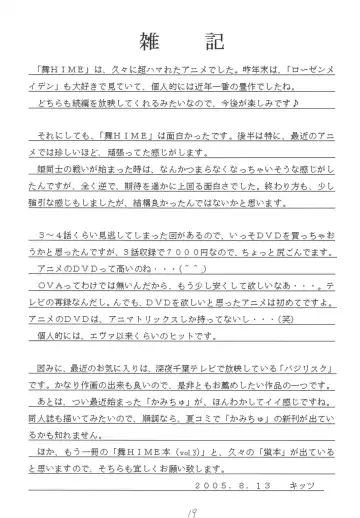 雑記
「舞HIME」は、久々に超ハマれたアニメでした。昨年末は、「ローゼンメ
イデン」も大好きで見ていて、個人的には近年一番の豊作でしたね。
どちらも続編を放映してくれるみたいなので、今後が楽しみです♪
それにしても、「舞HIME」は面白かったです。後半は特に、最近のアニ
メでは珍しいほど、頑張ってた感じがします。
姫同士の戦いが始まった時は、なんかつまらなくなっちゃいそうな感じがし
たんですが、全く逆で、期待を遥かに上回る面白さでした。終わり方も、少し
強引な感じもしましたが、結構良かったんではないかと思います。
3〜4話くらい見逃してしまった回があるので、いっそDVDを買っちゃお
うかと思ったんですが、3話収録で7000円なので、ちょっと尻ごんでます。
アニメのDVDって高いのね・・・(^^;)
OVAってわけでは無いんだから、もう少し安くして欲しいなあ・・・。テ
レビの再録なんだし。んでも、DVDを欲しいと思ったアニメは初めてですよ。
アニメのDVDは、アニマトリックスしか持ってないし・・・(笑)
個人的には、エヴァ以来くらいのヒットです。
因みに、最近のお気に入りは、深夜千葉テレビで放映している「バジリスク」
です。かなり作画の出来も良いので、是非ともお薦めしたい作品の一つです。
あとは、つい最近始まった「かみちゅ」が、ほんわかしてイイ感じですね。
同人誌も描いてみたいので、順調なら、夏コミで「かみちゅ」の新刊が出てい
るかも知れません。
ほか、もう一冊の「舞HIME本(vol.3)」と、久々の「蛍本」が出ている
と思いますので、そちらも宜しくお願い致します。
2005.8.13 キッツ
19